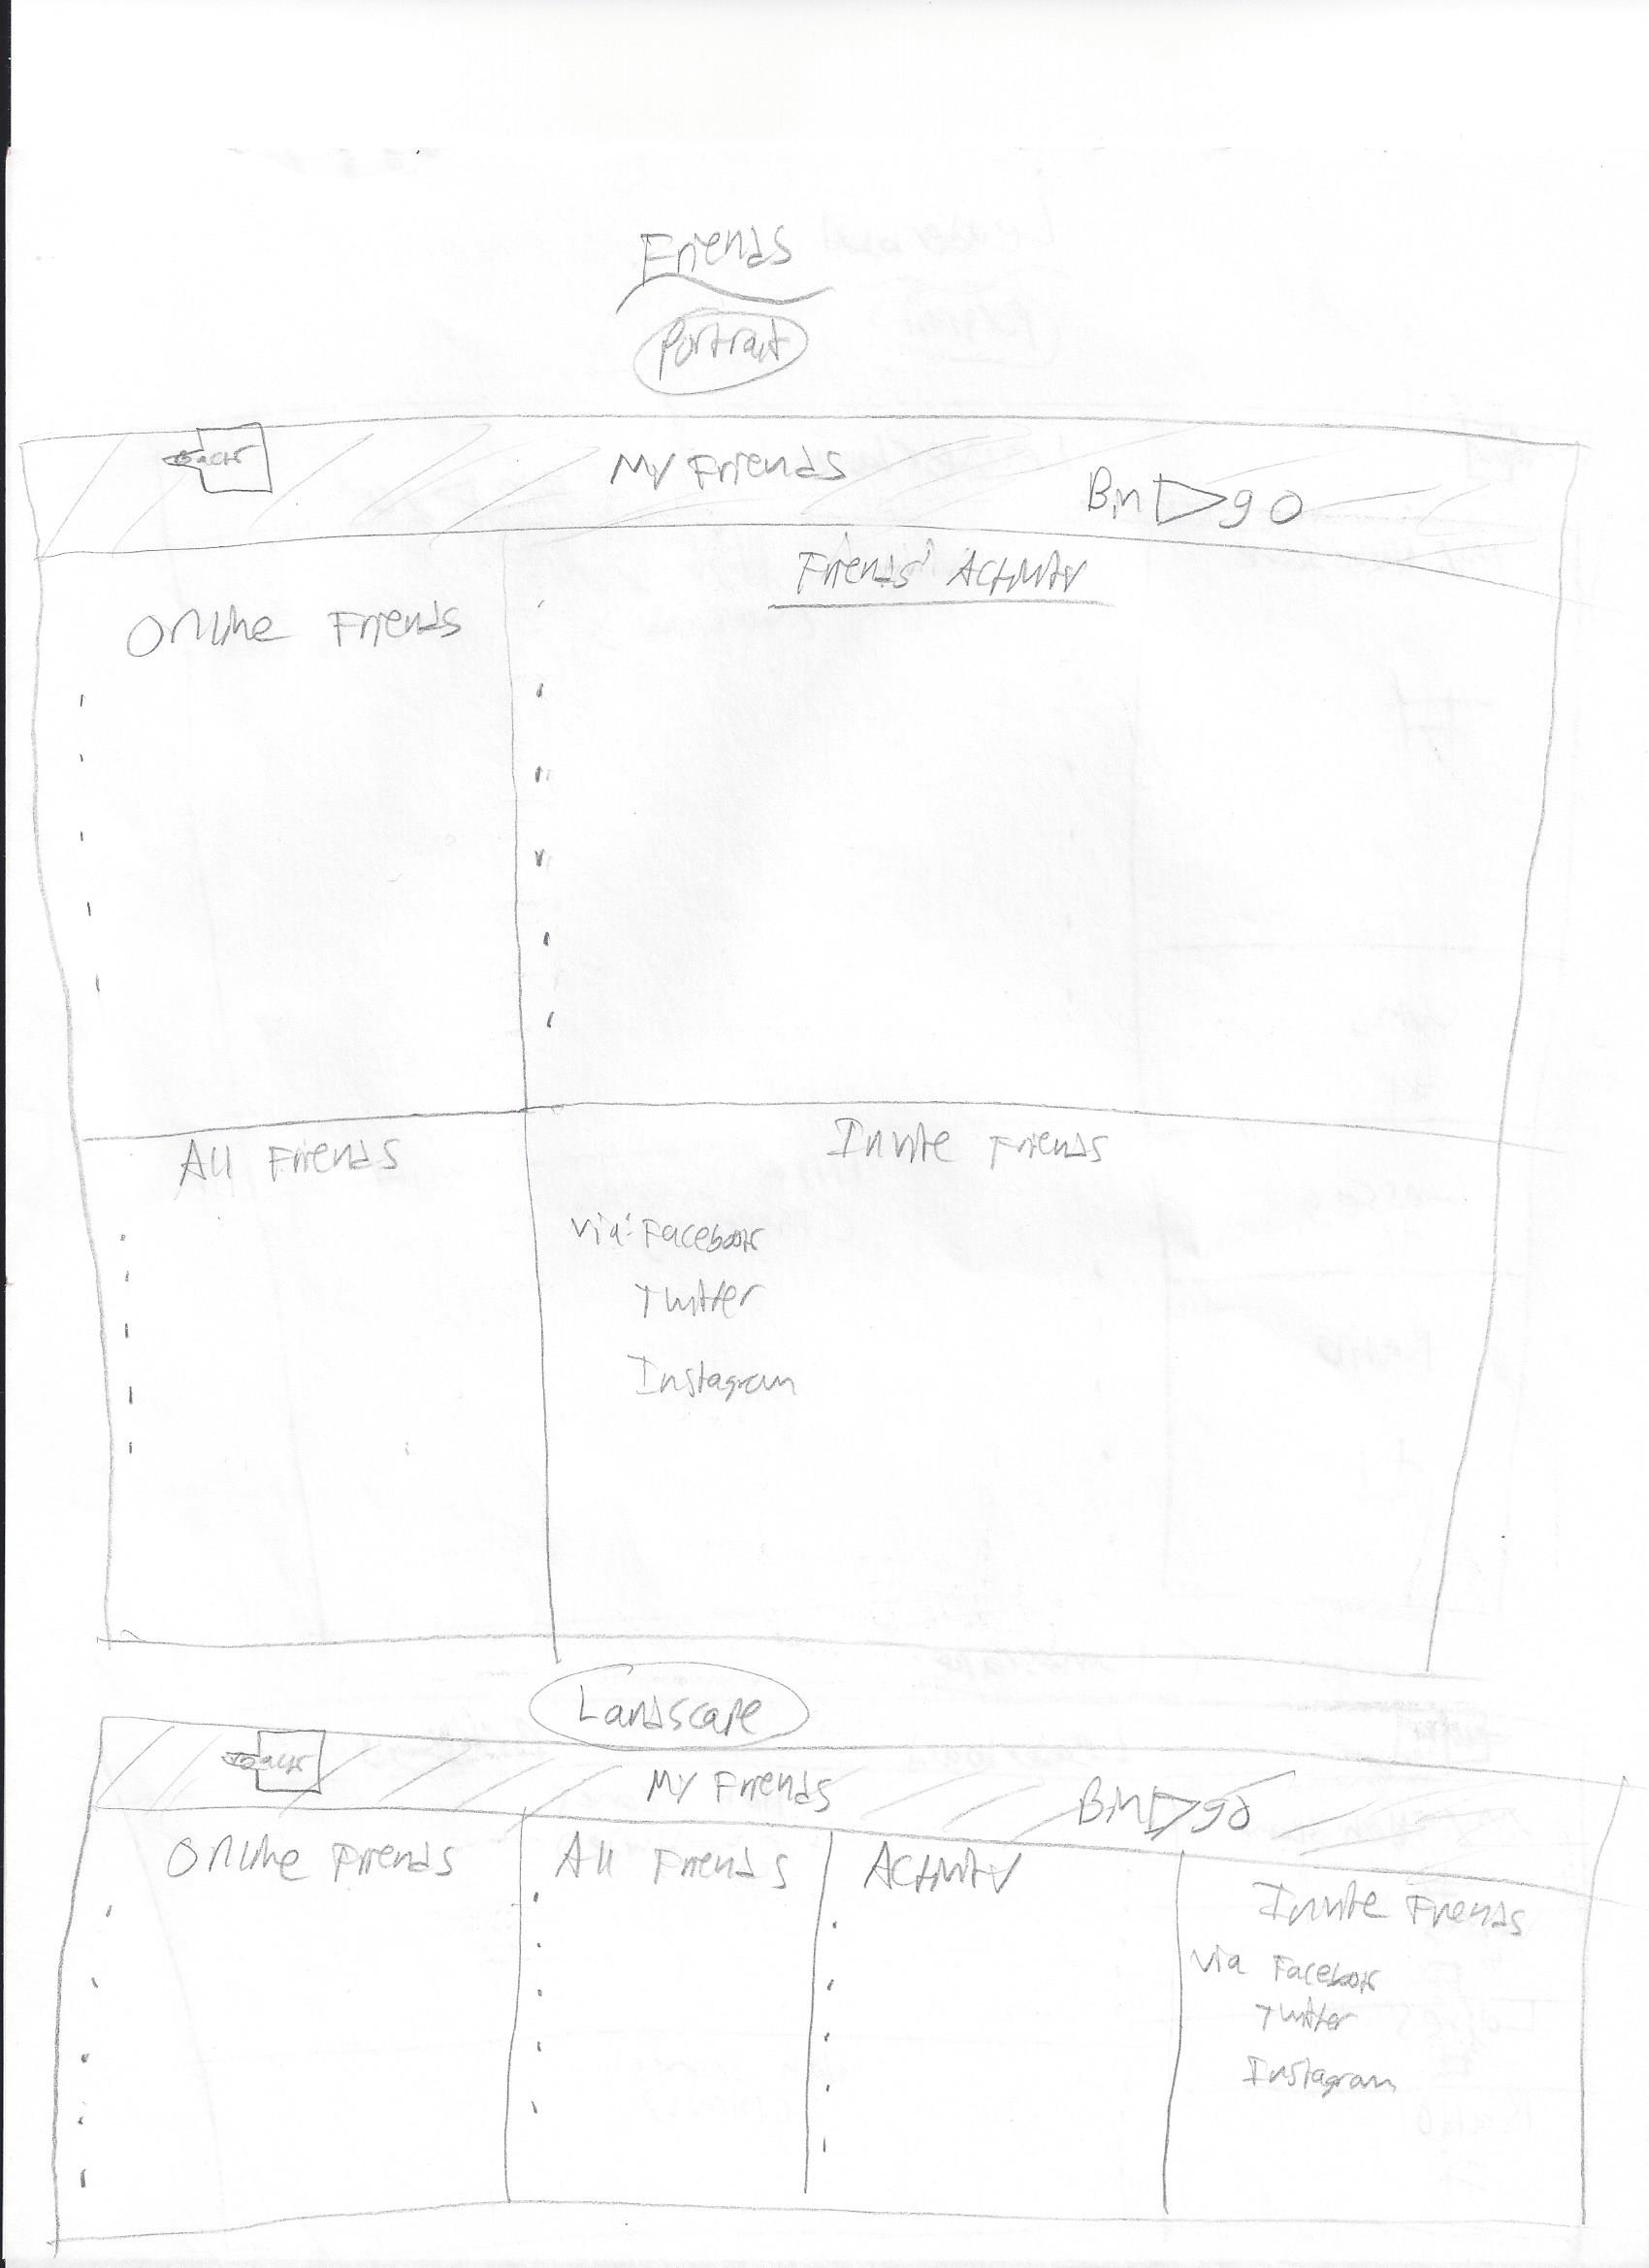 Friends
Portrait
Back
My Friends
Bin▷go
Friends' Activity
Online Friends
All Friends
Invite Friends
via: Facebook
Twitter
Instagram
Landscape
Back
My Friends
Bin▷go
Online Friends
All Friends
Activity
Invite Friends
via Facebook
Twitter
Instagram